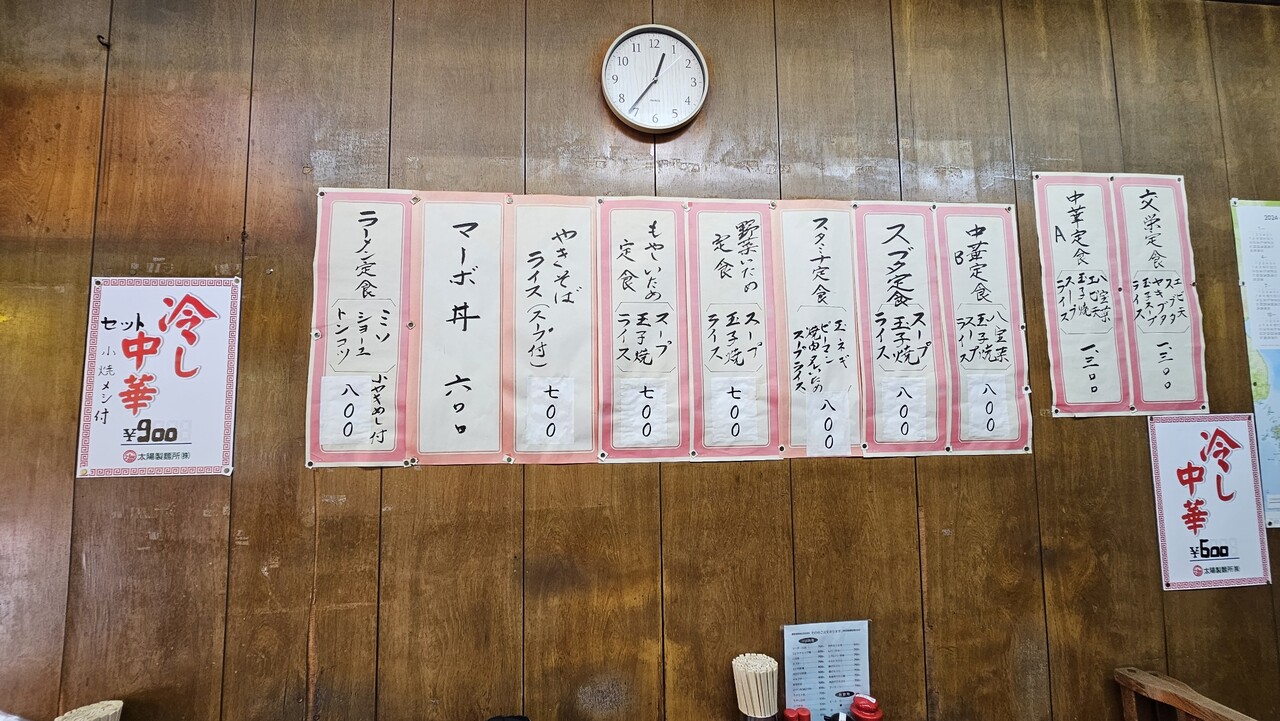 12
1
2
3
4
5
6
7
8
9
10
11
文栄定食
エビ天
スブタ
ヤキブタ
玉子スープ
ライス
一、三〇〇
中華定食
A
八宝菜
エビ天
玉子焼
スープ
ライス
一、三〇〇
中華定食
B
八宝菜
玉子焼
スープ
ライス
八〇〇
スブタ定食
スープ
玉子焼
ライス
八〇〇
スタミナ定食
玉ネギ
ピーマン
スープライス
八〇〇
野菜いため
定食
スープ
玉子焼
ライス
七〇〇
もやしいため
定食
スープ
玉子焼
ライス
七〇〇
やきそば
ライス(スープ付)
七〇〇
マーボ丼 六〇〇
ラーメン定食
ミソ
ショーユ
トンコツ
小やきめし付
八〇〇
冷し
中華
セット
小焼メシ付
¥900
太陽製麺所㈱
冷し
中華
¥600
太陽製麺所㈱
2024